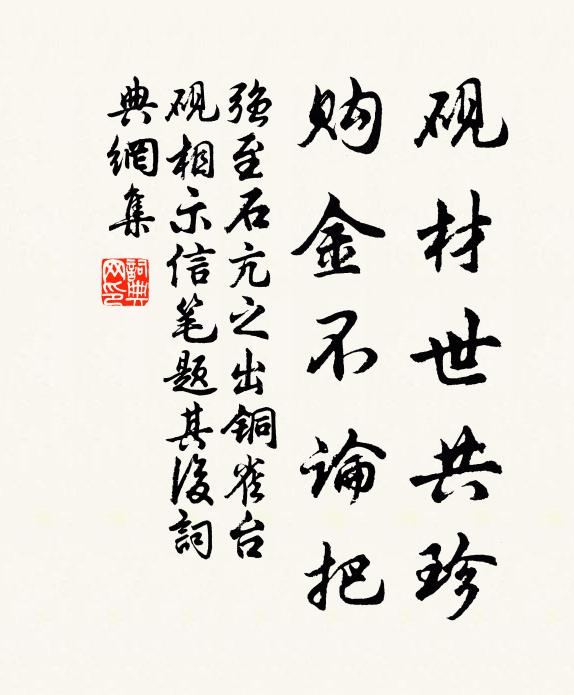 砚材世共珍
购金不论把
强至石亢之出铜雀台
砚相示信笔题其后词
典網集
詞典
网印